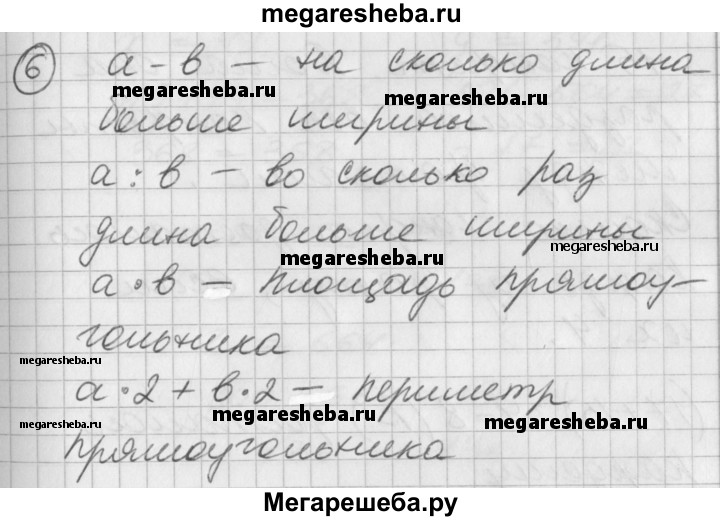 megaresheba.ru
6 а - в — на сколько длина
megaresheba.ru megaresheba.ru
больше ширины
а : в — во сколько раз
длина больше ширины
megaresheba.ru megaresheba.ru
а · в — площадь прямоу-
гольника
megaresheba.ru
а · 2 + в · 2 — периметр
megaresheba.ru megaresheba.ru megaresheba.ru
прямоугольника
Мегарешеба.ру